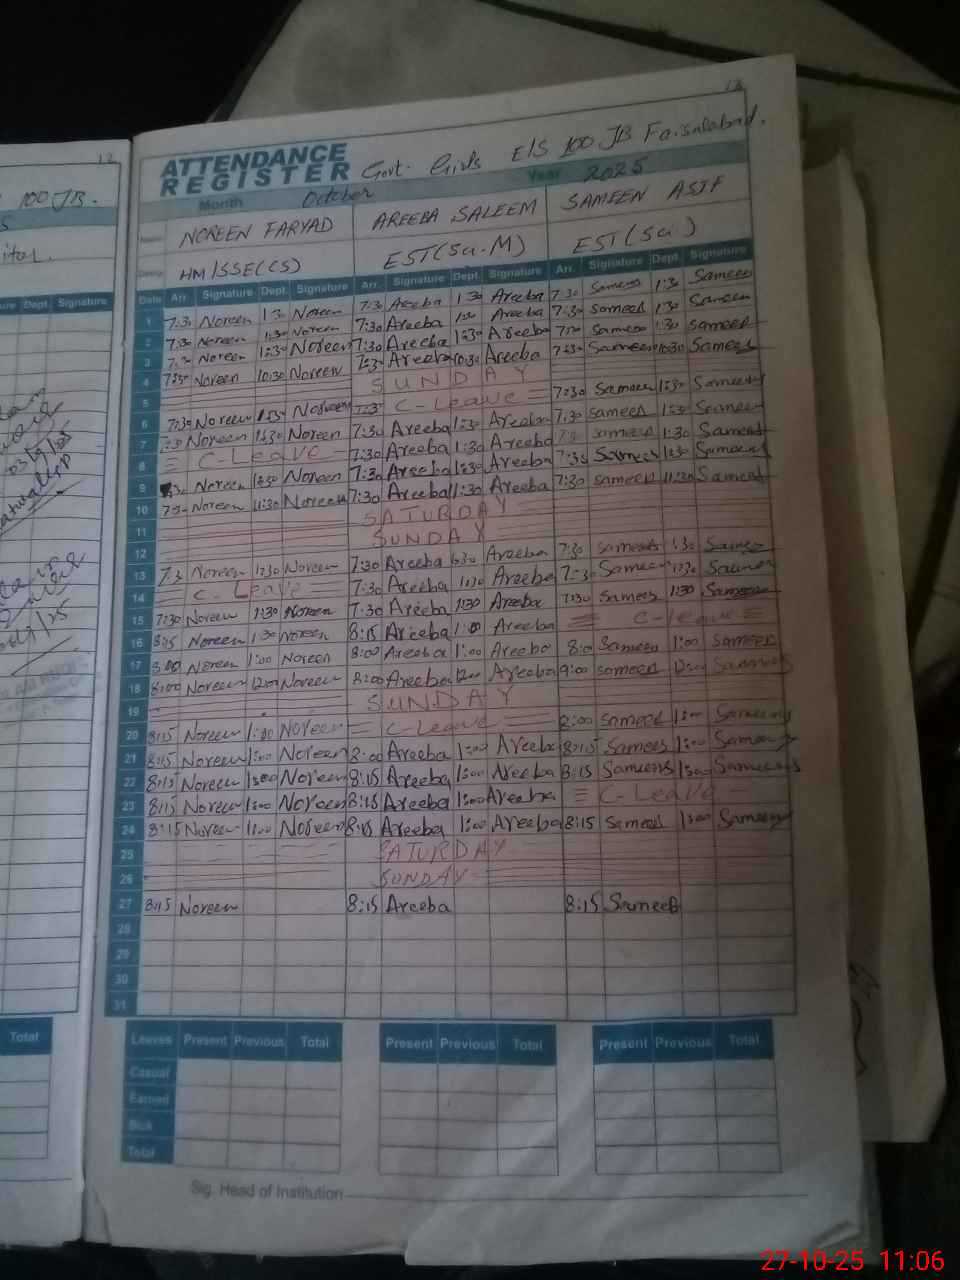 12
100 JB.
ATTENDANCE REGISTER Govt. Girls E/S 100 JB Faisalabad.
Month October Year 2025
NOREEN FARYAD AREEBA SALEEM SAMEEN ASIF
HM/SSE(CS) EST(Sci.M) EST(Sci)
Date Arr. Signature Dept. Signature Arr. Signature Dept. Signature Arr. Signature Dept. Signature
Dept. Signature
1 7:30 Noreen 1:30 Noreen 7:30 Areeba 1:30 Areeba 7:30 Sameen 1:30 Sameen
2 7:30 Noreen 1:30 Noreen 7:30 Areeba 1:30 Areeba 7:30 Sameen 1:30 Sameen
3 Noreen 1:30 Noreen 7:30 Areeba 1:30 Areeba Sameen 1:30 Sameen
4 7:30 Noreen 10:30 Noreen 7:30 Areeba 10:30 Areeba 7:30 Sameen 10:30 Sameen
5 SUNDAY
6 7:30 Noreen 1:30 Noreen C-Leave 7:30 Sameen 1:30 Sameen
7 7:30 Noreen 1:30 Noreen 7:30 Areeba 1:30 Areeba 7:30 Sameen 1:30 Sameen
8 C-Leave 7:30 Areeba 1:30 Areeba Sameen 1:30 Sameen
9 Noreen 1:30 Noreen 7:30 Areeba 1:30 Areeba 7:30 Sameen 1:30 Sameen
10 Noreen 11:30 Noreen 7:30 Areeba 11:30 Areeba 7:30 Sameen 11:30 Sameen
11 SATURDAY
12 SUNDAY
13 7:30 Noreen 1:30 Noreen 7:30 Areeba 1:30 Areeba 7:30 Sameen 1:30 Sameen
14 C-Leave 7:30 Areeba 1:30 Areeba 7:30 Sameen 1:30 Sameen
15 7:30 Noreen 1:30 Noreen 7:30 Areeba 1:30 Areeba 7:30 Sameen 1:30 Sameen
16 8:15 Noreen 1:30 Noreen 8:15 Areeba 1:00 Areeba C-Leave
17 8:00 Noreen 1:00 Noreen 8:00 Areeba 1:00 Areeba 8:0 Sameen 1:00 Sameen
18 8:00 Noreen 12:00 Noreen 8:00 Areeba 12:00 Areeba 9:00 Sameen 12:00 Sameen
19 SUNDAY
20 8:15 Noreen 1:00 Noreen C-Leave 8:00 Sameen 1:00 Sameen
21 8:15 Noreen 1:00 Noreen 8:00 Areeba 1:00 Areeba 8:15 Sameen 1:00 Sameen
22 8:15 Noreen 1:00 Noreen 8:15 Areeba 1:00 Areeba 8:15 Sameen 1:00 Sameen
23 8:15 Noreen 1:00 Noreen 8:15 Areeba 1:00 Areeba C-Leave
24 8:15 Noreen 1:00 Noreen 8:15 Areeba 1:00 Areeba 8:15 Sameen 1:00 Sameen
25 SATURDAY
26 SUNDAY
27 8:15 Noreen 8:15 Areeba 8:15 Sameen
28
29
30
31
Total
Leaves Present Previous Total Present Previous Total Present Previous Total
Casual
Earned
Sick
Total
Sig. Head of Institution
27-10-25 11:06